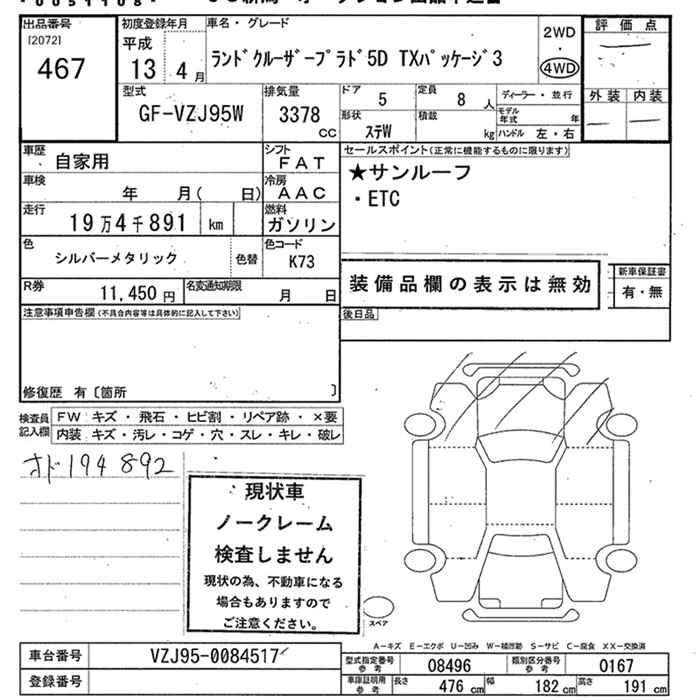 出品番号
[2072]
467
初度登録年月
平成
13 4 月
車名・グレード
ランドクルーザープラド5D TXパッケージ3
2WD
・
4WD
評 価 点
外 装 内 装
型式
GF-VZJ95W
排気量
3378
cc
ドア
5
定員
8 人
ディーラー・並行
モデル年式 年
形状
ステW
積載
kg
ハンドル 左・右
車歴
自家用
シフト
FAT
セールスポイント(正常に機能するものに限ります)
★サンルーフ
・ETC
車検
年 月( 日)
冷房
AAC
走行
19万4千891 km
燃料
ガソリン
色
シルバーメタリック
色替
色コード
K73
装備品欄の表示は無効
新車保証書
有・無
R券
11,450 円
名変通知期限
月 日
後日品
注意事項申告欄(不具合内容等は具体的に記入して下さい)
修復歴 有〔箇所 〕
検査員
記入欄
FW キズ・飛石・ヒビ割・リペア跡・×要
内装 キズ・汚レ・コゲ・穴・スレ・キレ・破レ
オド194892
現状車
ノークレーム
検査しません
現状の為、不動車になる
場合もありますので
ご注意ください。
スペア
A-キズ E-エクボ U-凹み W-補修跡 S-サビ C-腐食 XX-交換済
車台番号
VZJ95-0084517
登録番号
型式指定番号
参考
08496
類別区分番号
参考
0167
車庫証明用
参考
長さ
476 cm
幅
182 cm
高さ
191 cm